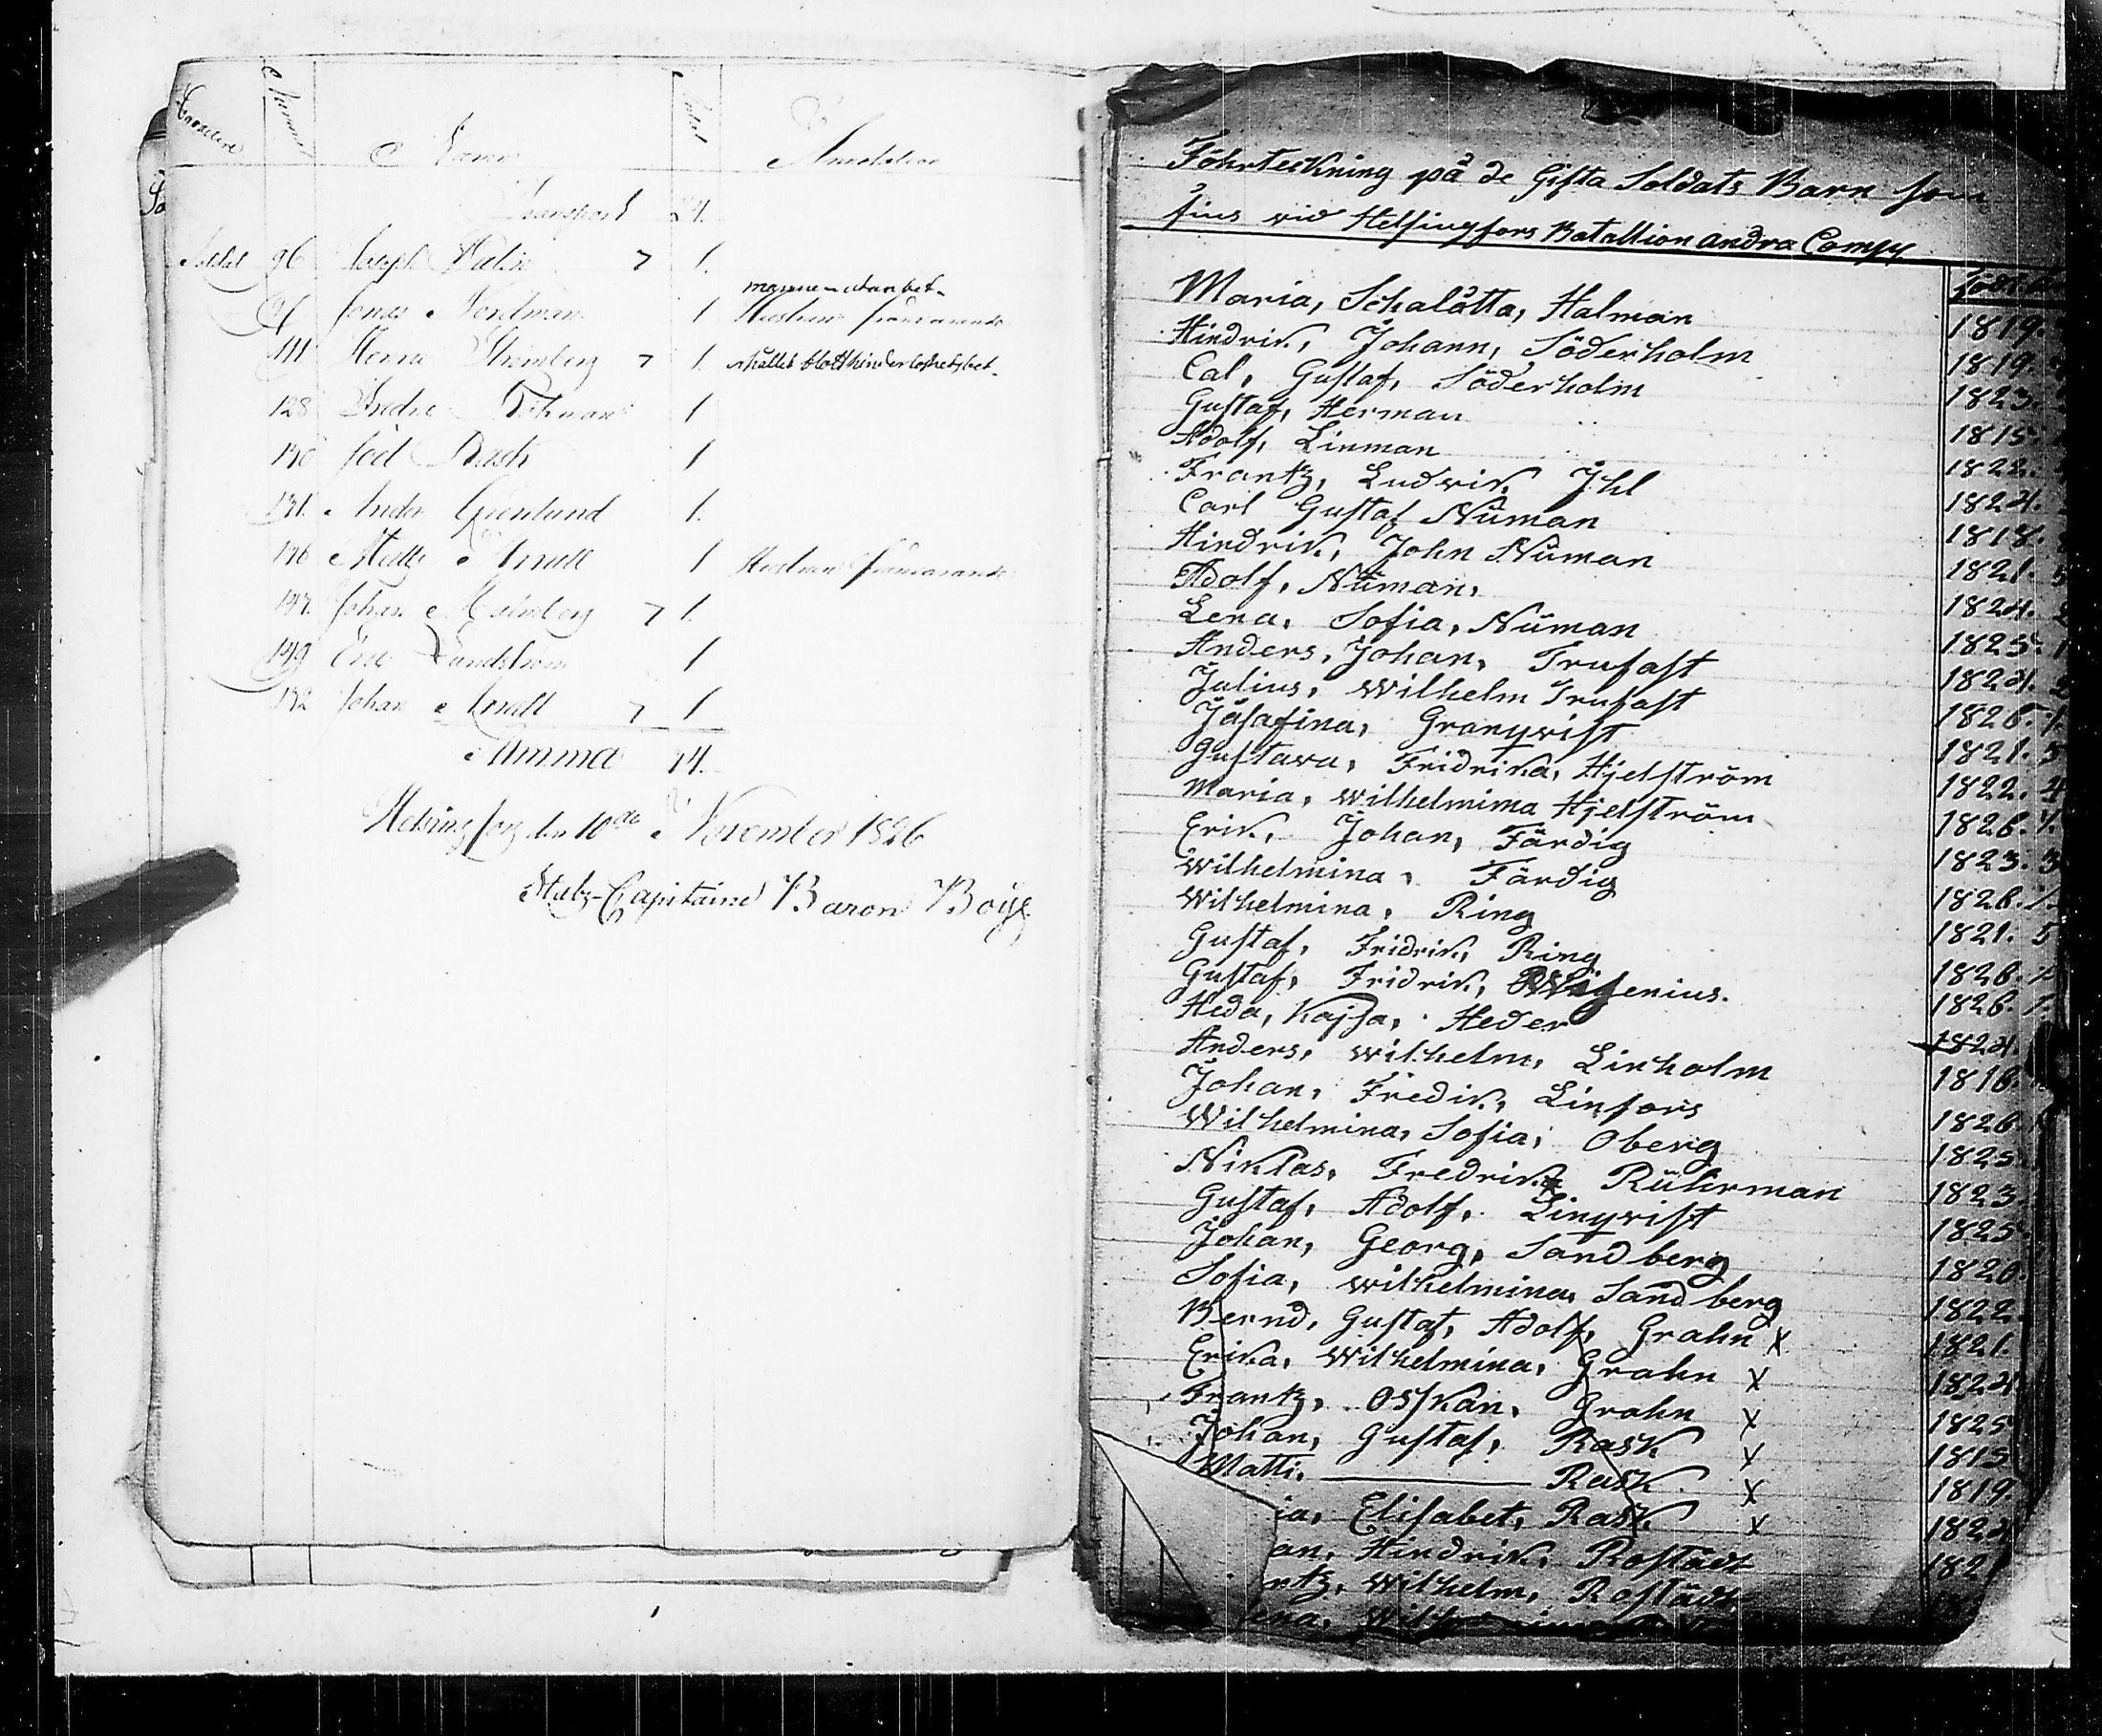 Nummer
Namn
Antal
Anmärkning
Transport 24.
Soldat 96 Joseph Walin 7 1.
mannen utan bet.
Jonas Nordman 1 Hustrun frånvarande
111 Strömberg 7 1.
128 1
130 Joel Rask 1
131. Anders Grönlund 1.
146 Matts Knall 1 Hustrun frånvarande
147. Johan Malmberg 7 1.
149 Eric Sundström 1
152 Johan Knall 7 1
Summa 14.
Helsingfors den 10de November 1826
Stabs-Capitaine Baron Boije
Föhrteckning på de Gifta Soldats Barn som
fins vid Helsingfors Batallion andra Compy
Maria, Schalåtta, Halman 1819.
Hindrik, Johann, Söderholm 1819.
Cal, Gustaf, Söderholm 1823.
Gustaf, Herman 1815.
Adolf, Linman 1822.
Frantz, Ludvik Ihl 1824.
Carl Gustaf Nüman 1818.
Hindrik, John Nüman 1821.
Adolf, Nüman, 1824.
Lena, Sofia, Nüman 1825.
Anders, Johan, Trufast 1824.
Julius, Wilhelm Trufast 1826.
Jåsafina, Granqvist 1821.
Gustava, Fridrika, Hjelström 1822.
Maria, Wilhelmima Hjelström 1826.
Erik, Johan, Färdig 1823. 3
Wilhelmina, Färdig 1826.
Wilhelmina, Ring 1821. 5
Gustaf, Fridrik, Ring 1826.
Gustaf, Fridrik, 1826.
Heda, Kajsa, Heder 1824.
Anders, Wilhelm, Linholm 1816.
Johan, Fredik, Linfors 1826.
Wilhelmina, Sofia, Oberg 1825
Niklas, Fredrik, Rührman 1823.
Gustaf, Adolf, Linqvist 1825
Johan, Georg, Sandberg 1820.
Sofia, Wilhelmina, Sandberg 1822
Bernd, Gustaf, Adolf, Grahn X 1821.
Erika, Wilhelmina, Grahn X 1824
Frantz, Osskan, Grahn X 1825
Johan, Gustaf, Rask X 1815
Matti, Rask X 1819.
ia, Elisabet, Rask X 1824
an, Hindrik, Rostädt 182
ntz, Wilhelm, Rostädt
ena,